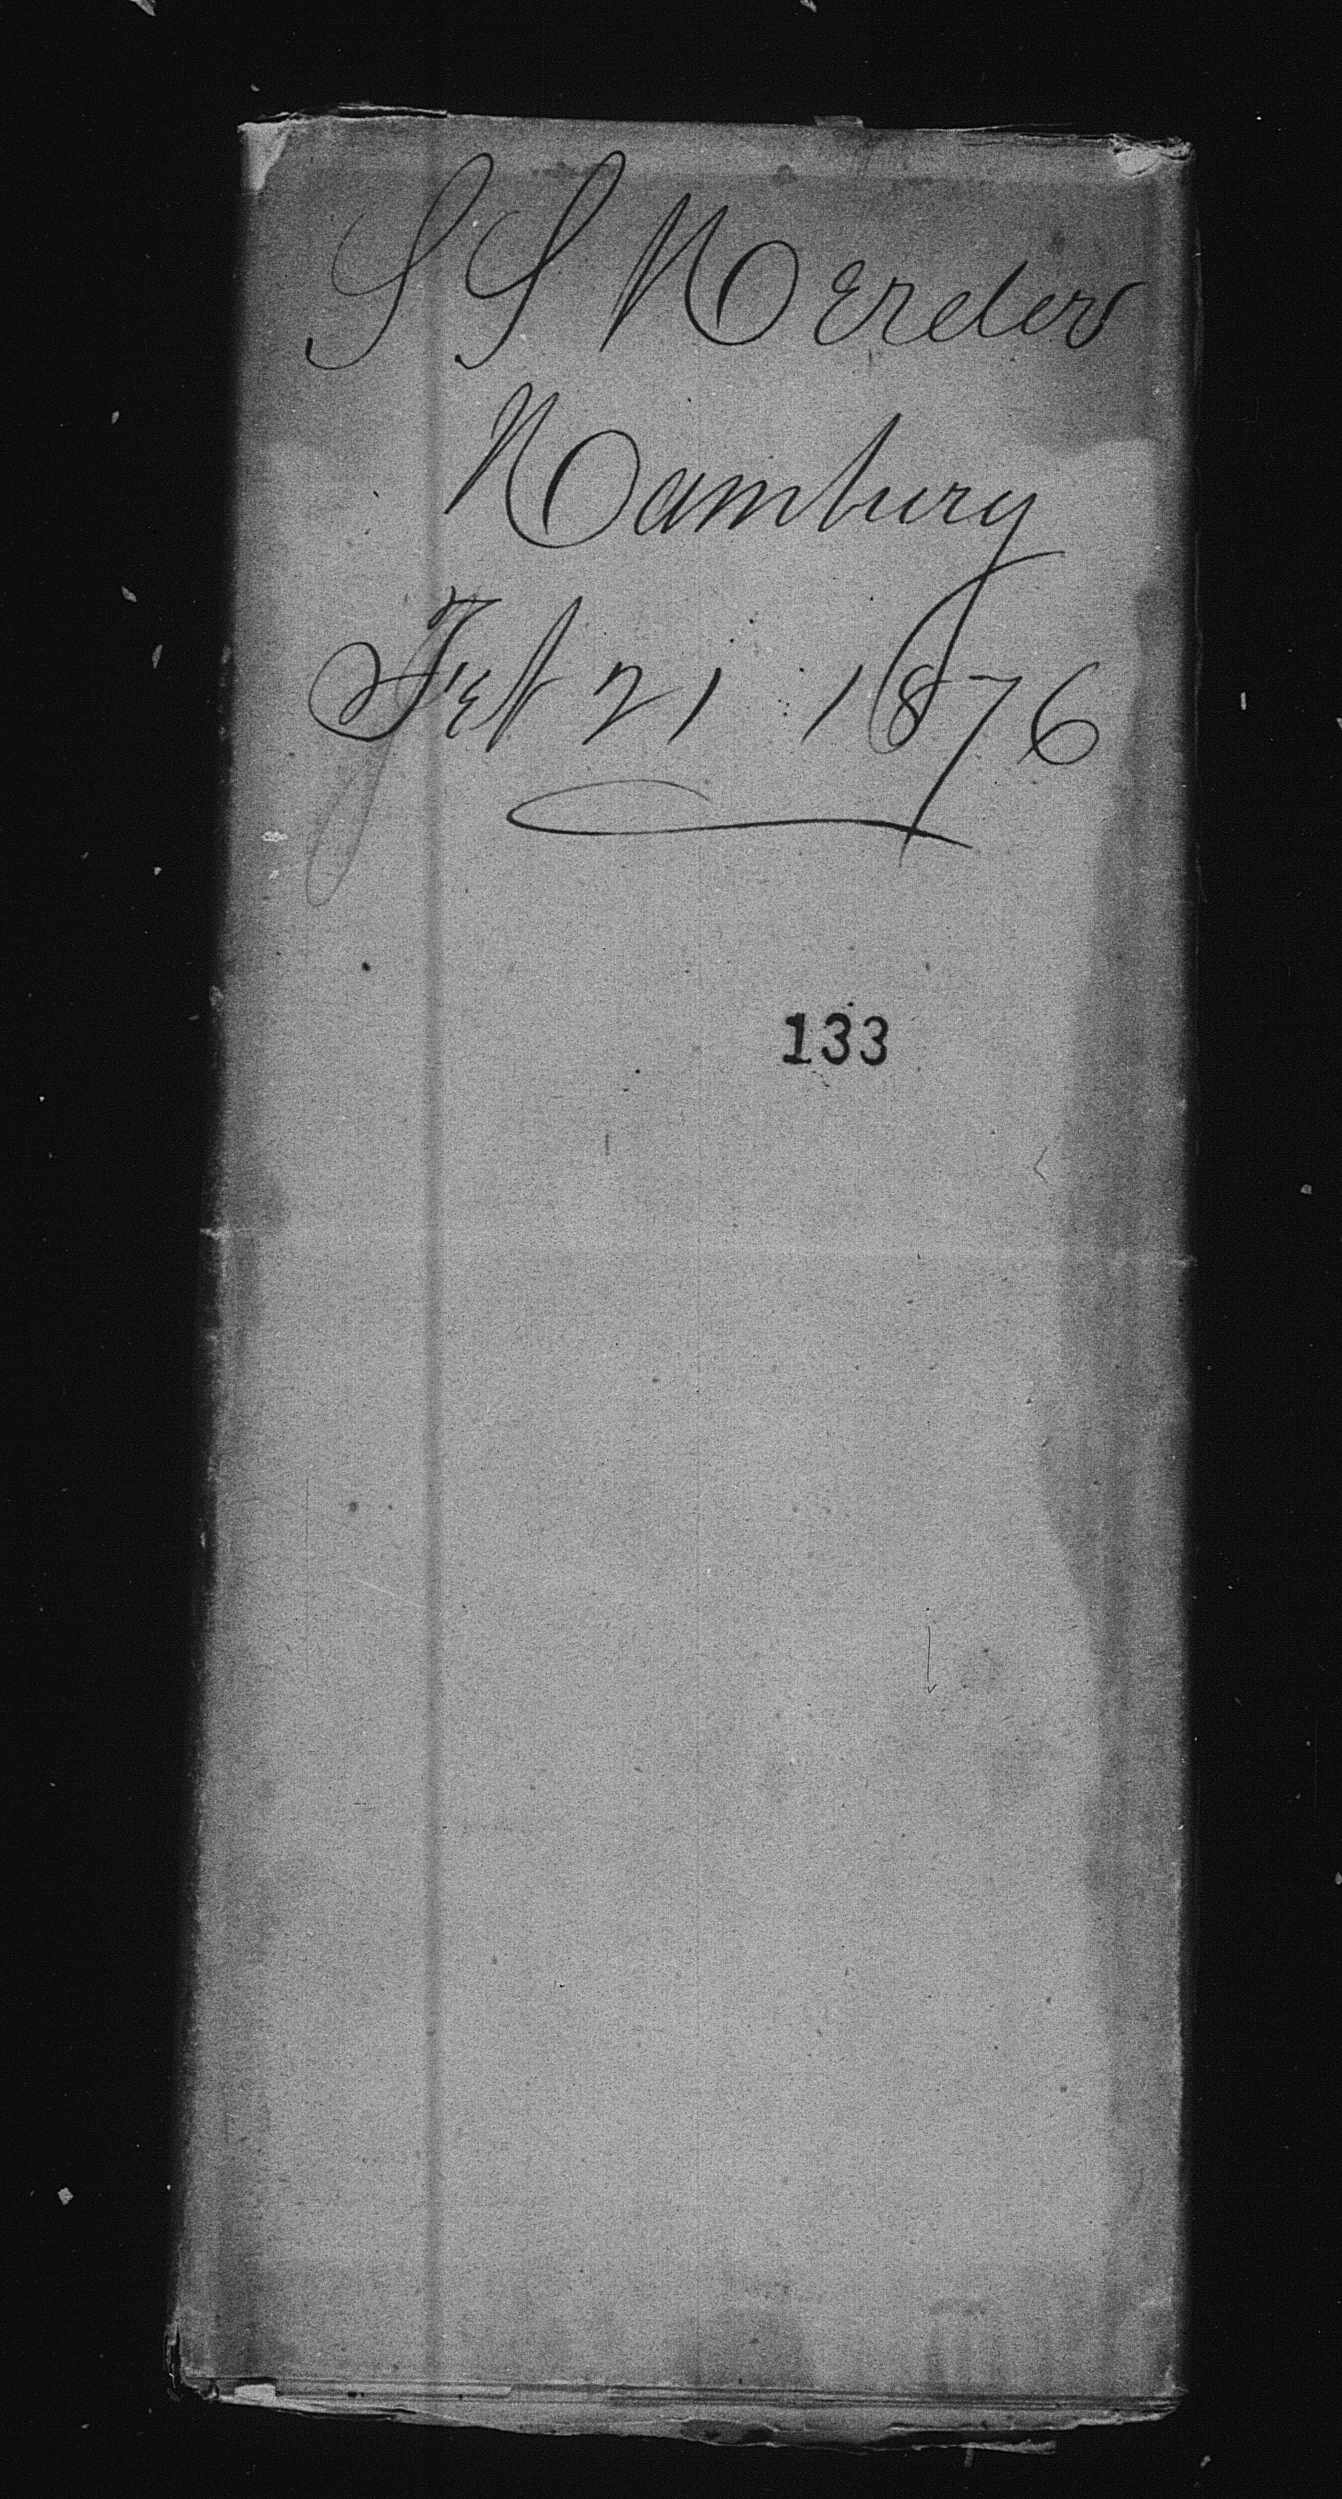 S S Herder
Hamburg
Feb 21 1876
133